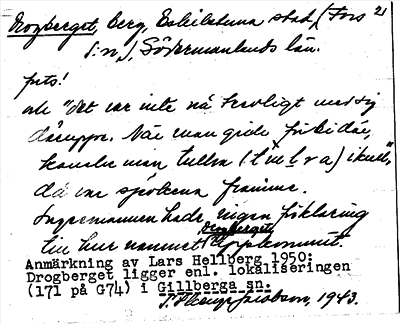 Drogberget, berg, Eskilstuna stad (Fors 2)
s:n), Södermanlands län.
forts!
och "det var inte nå trevligt med sig
däruppe. När man gick förbi där,
kanske man tullra (t u l r a) ikull",
då va spökena framme.
Ingen hade ingen förklaring
till hur namnet Drogberget uppkommit.
Anmärkning av Lars Hellberg 1950:
Drogberget ligger enl. lokaliseringen
(171 på G74) i Gillberga sn.
1943.